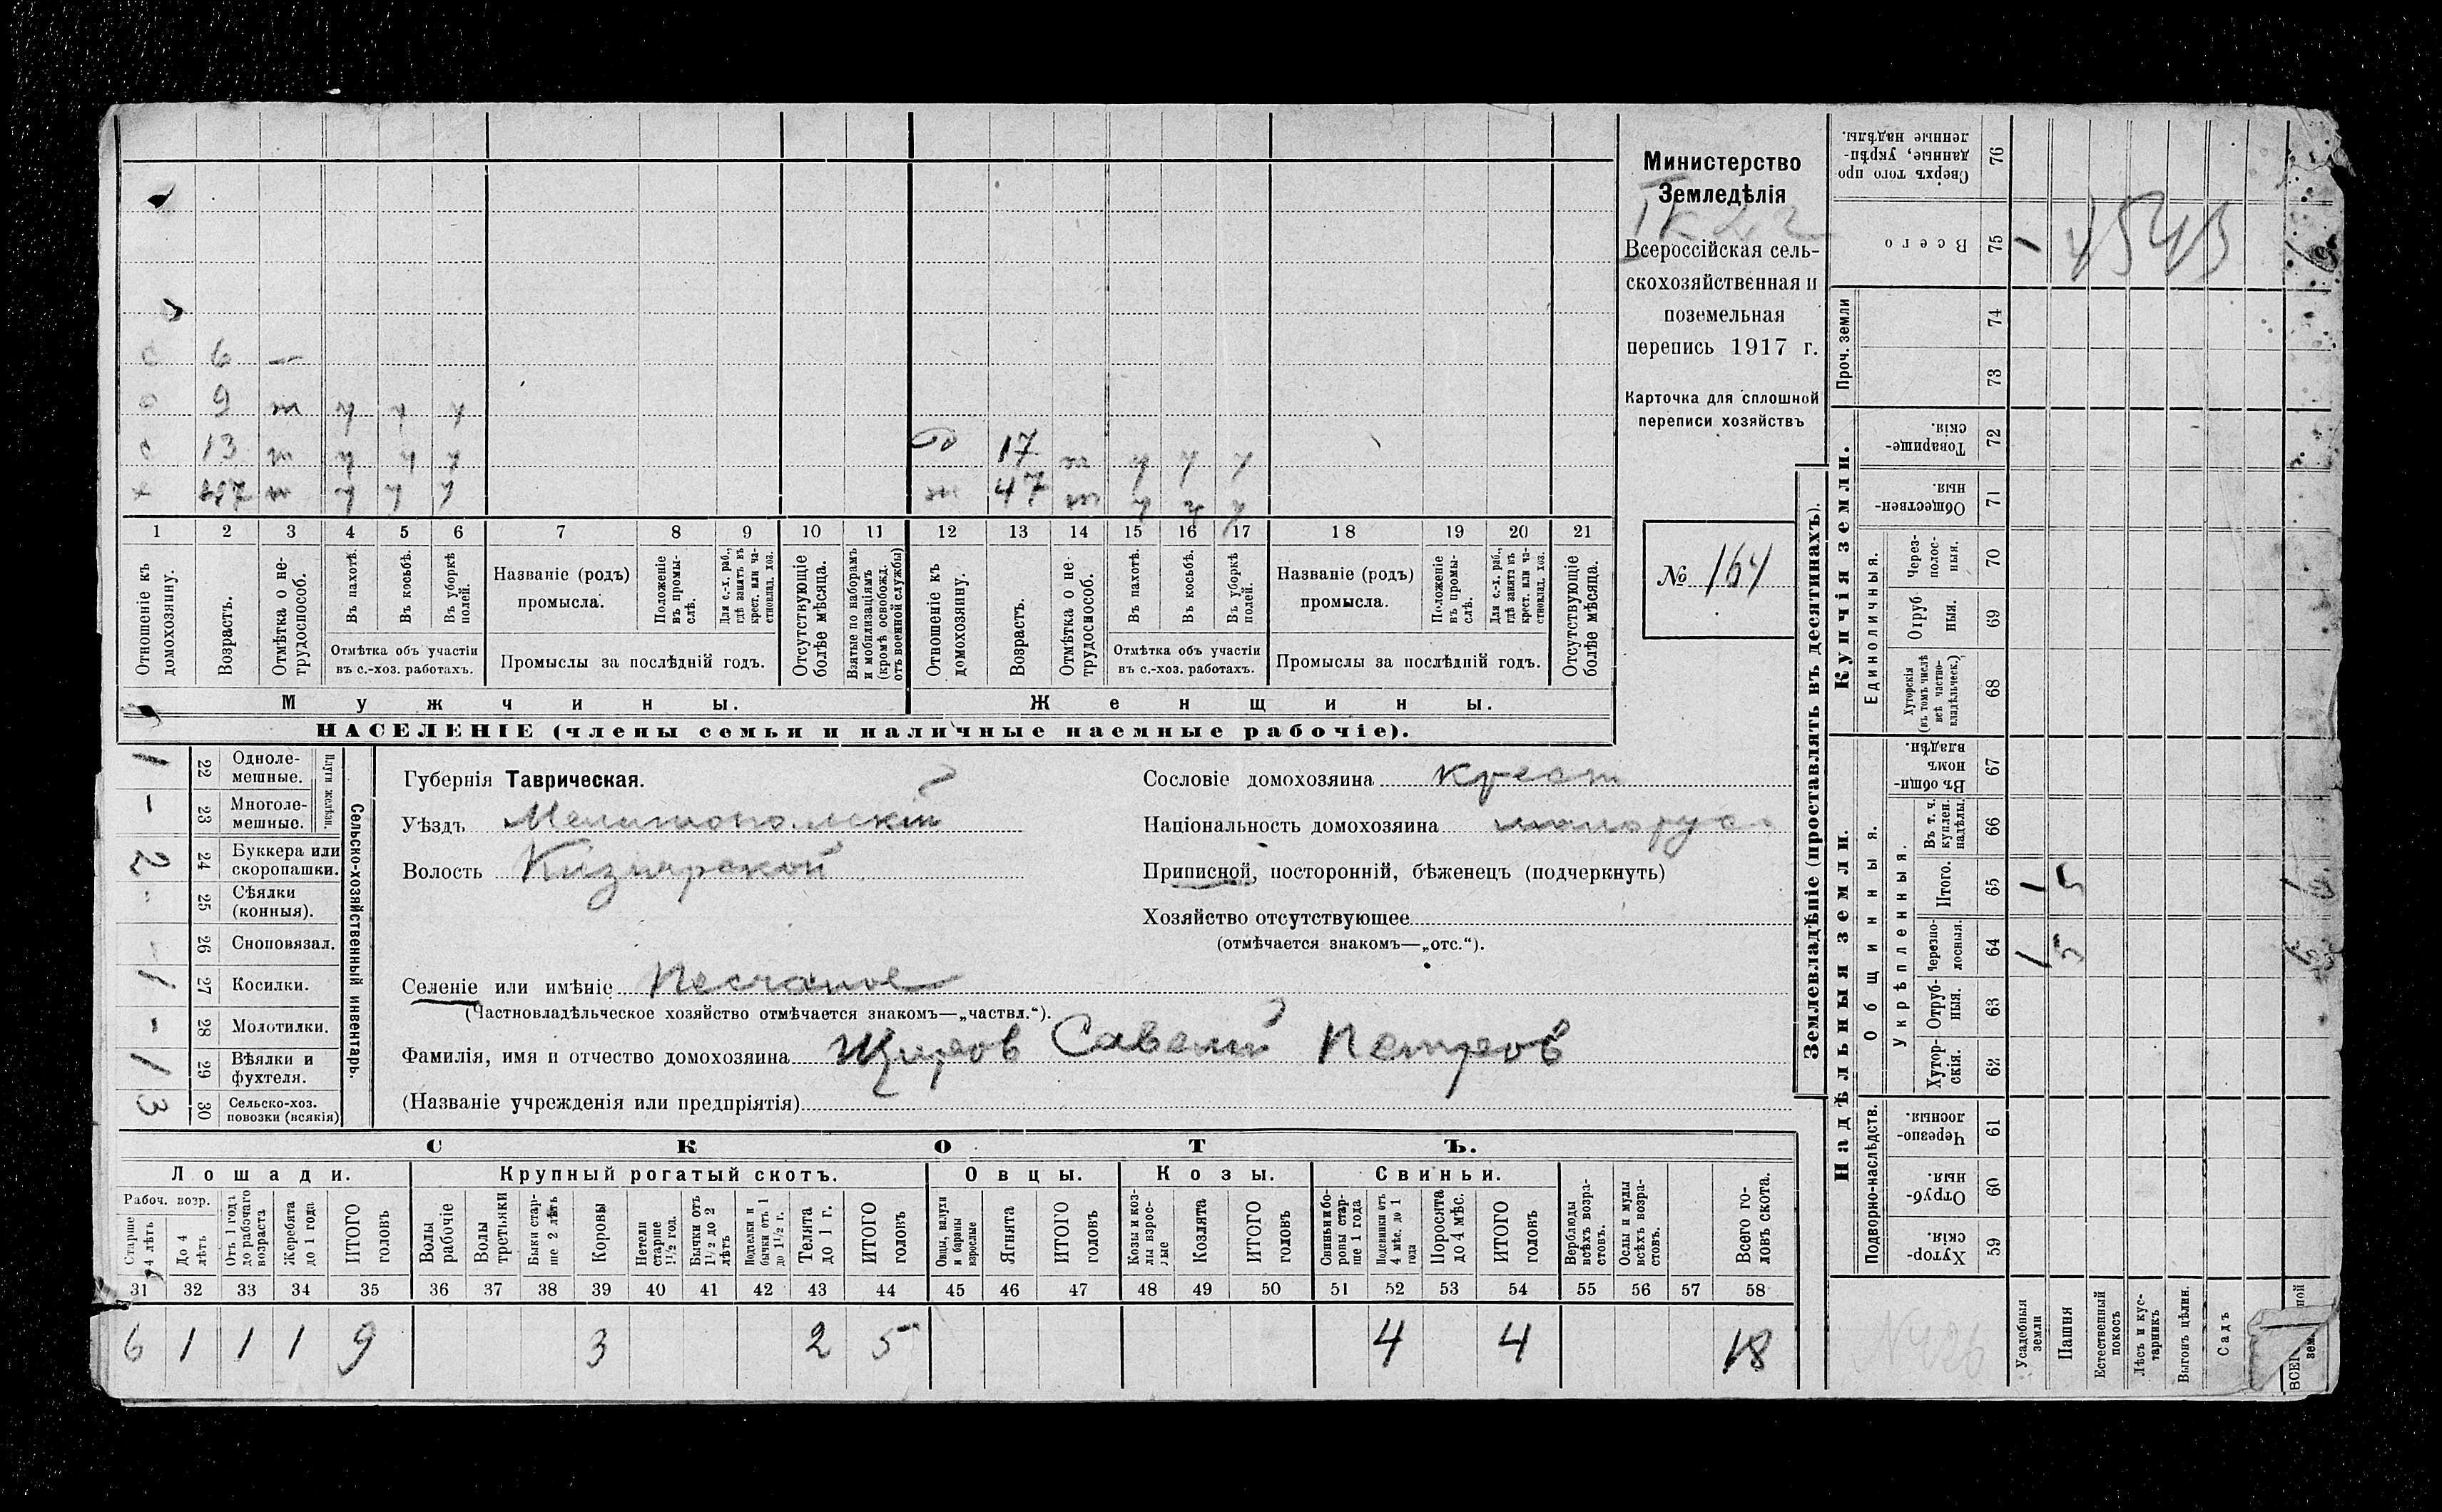 Министерство
Земледѣлія
Всероссійская сель-
скохозяйственная и
поземельная
перепись 1917 г.
Карточка для сплошной
переписи хозяйствъ
№ 164
с 6 —
с 9 т у у у
с 13 т у у у
17 т у у у
х 47 т у у у
ж 47 т у у у
1 2 3 4 5 6 7 8 9 10 11 12 13 14 15 16 17 18 19 20 21
Отношеніе къ домохозяину.
Возрастъ.
Отмѣтка о не-трудоспособ.
Въ пахотѣ.
Въ косьбѣ.
Въ уборкѣ полей.
Отмѣтка объ участіи
въ с.-хоз. работахъ.
Названіе (родъ)
промысла.
Положеніе въ промы-слѣ.
Для с.-х. раб., гдѣ занятъ въ крест. или ча-стновлад. хоз.
Промыслы за послѣдній годъ.
Отсутствующіе болѣе мѣсяца.
Взятые по наборамъ и мобилизаціямъ (кромѣ освобожд. отъ военной службы)
Отношеніе къ домохозяину.
Возрастъ.
Отмѣтка о не трудоспособ.
Въ пахотѣ.
Въ косьбѣ.
Въ уборкѣ полей.
Отмѣтка объ участіи
въ с.-хоз. работахъ.
Названіе (родъ)
промысла.
Положеніе въ промы-слѣ.
Для с.-х. раб., гдѣ занята въ крест. или ча-стновлад. хоз.
Промыслы за послѣдній годъ.
Отсутствующіе болѣе мѣсяца.
Мужчины.
Женщины.
НАСЕЛЕНІЕ (члены семьи и наличные наемные рабочіе).
Сельско-хозяйственный инвентарь.
Плуги желѣзн.
1 22 Одноле-мешные.
- 23 Многоле-мешные.
2 24 Буккера или скоропашки.
25 Сѣялки (конныя).
26 Сноповязал.
1 27 Косилки.
- 28 Молотилки.
1 29 Вѣялки и фухтеля.
3 30 Сельско-хоз. повозки (всякія)
Губернія Таврическая.
Уѣздъ Мелитопольскій
Волость Кизиярской
Селеніе или имѣніе Песчаное
(Частновладѣльческое хозяйство отмѣчается знакомъ—„частвл.“).
Фамилія, имя и отчество домохозяина Щиров Савелий Петров
(Названіе учрежденія или предпріятія)
Сословіе домохозяина крест
Національность домохозяина малорус
Приписной, посторонній, бѣженецъ (подчеркнуть)
Хозяйство отсутствующее
(отмѣчается знакомъ—„отс.“).
СКОТЪ.
Лошади.
Крупный рогатый скотъ.
Овцы.
Козы.
Свиньи.
Рабоч. возр.
Старше 4 лѣтъ
До 4 лѣтъ
Отъ 1 года до рабочаго возраста
Жеребята до 1 года
ИТОГО головъ
Волы рабочіе
Волы третьяки
Быки стар-ше 2 лѣтъ
Коровы
Нетели старше 1½ год.
Бычки отъ 1½ до 2 лѣтъ
Подтелки и бычки отъ 1 до 1½ г.
Телята до 1 г.
ИТОГО головъ
Овцы, валухи и бараны взрослые
Ягнята
ИТОГО головъ
Козы и коз-лы взрос-лые
Козлята
ИТОГО головъ
Свиньи и бо-ровы стар-ше 1 года
Подсвинки отъ 4 мѣс. до 1 года
Поросята до 4 мѣс.
ИТОГО головъ
Верблюды всѣхъ возра-стовъ.
Ослы и мулы всѣхъ возра-стовъ.
Всего го-ловъ скота.
31 32 33 34 35 36 37 38 39 40 41 42 43 44 45 46 47 48 49 50 51 52 53 54 55 56 57 58
6 1 1 1 9 3 2 5 4 4 18
Землевладѣніе (проставлять въ десятинахъ).
Купчія земли.
Надѣльныя земли.
Проч. земли
Единоличныя.
Общинныя.
Укрѣпленныя.
Подворно-наслѣдств.
Сверхъ того про данные, укрѣп-ленные надѣлы. 76
Всего 75
74
73
Товарище-скія. 72
Обществен-ныя. 71
Через-полос-ныя. 70
Отруб ныя. 69
Хуторскія (въ томъ числѣ всѣ частно-владѣльческ.) 68
Въ общи-номъ владѣн. 67
Въ т. ч. куплен. надѣлы. 66
Итого. 65 1 5
Черезпо-лосныя. 64 1 5
Отруб-ныя. 63
Хутор-скія. 62
Черезпо-лосныя. 61
Отруб-ныя. 60
Хутор-скія. 59
Усадебныя земли
Пашня
Естественный покосъ
Лѣсъ и кус-тарникъ
Выгонъ цѣлин.
Садъ